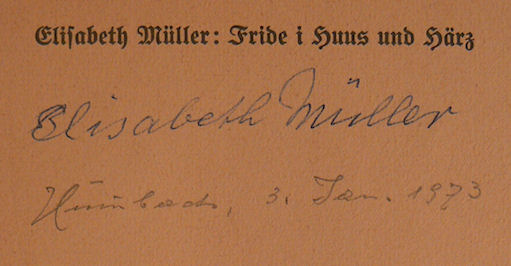 Elisabeth Müller: Fride i Huus und Härz
Elisabeth Müller
Hünibach, 3. Jan. 1973